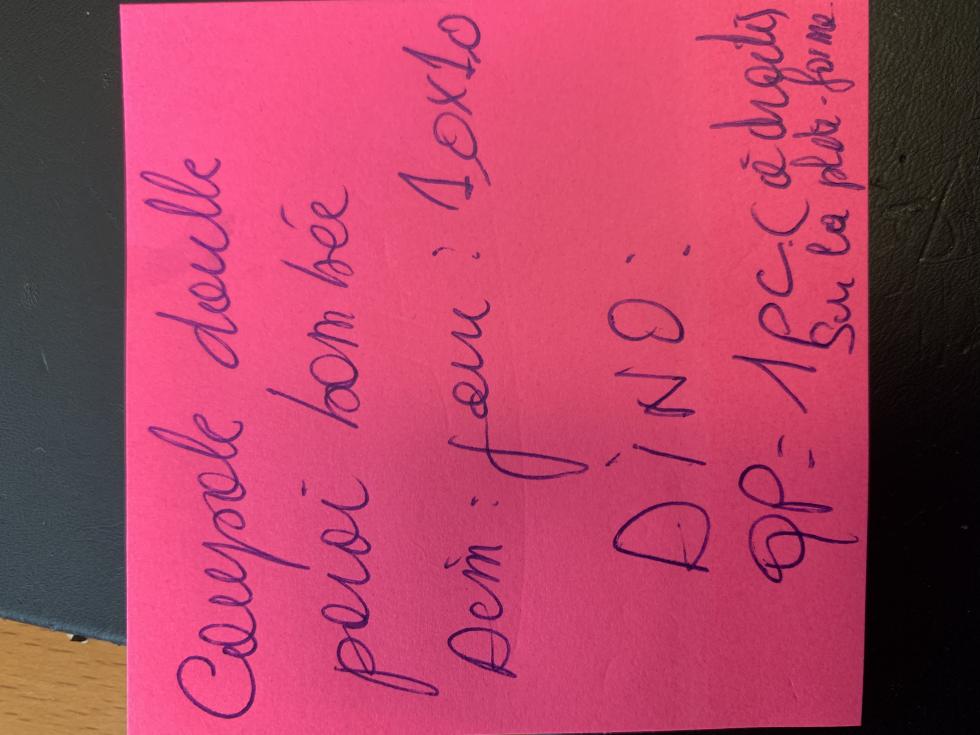 Coupole double
paroi bombée
Dim : feu : 10x10
DINO :
QP = 1 PC (à droite
sur la plate-forme